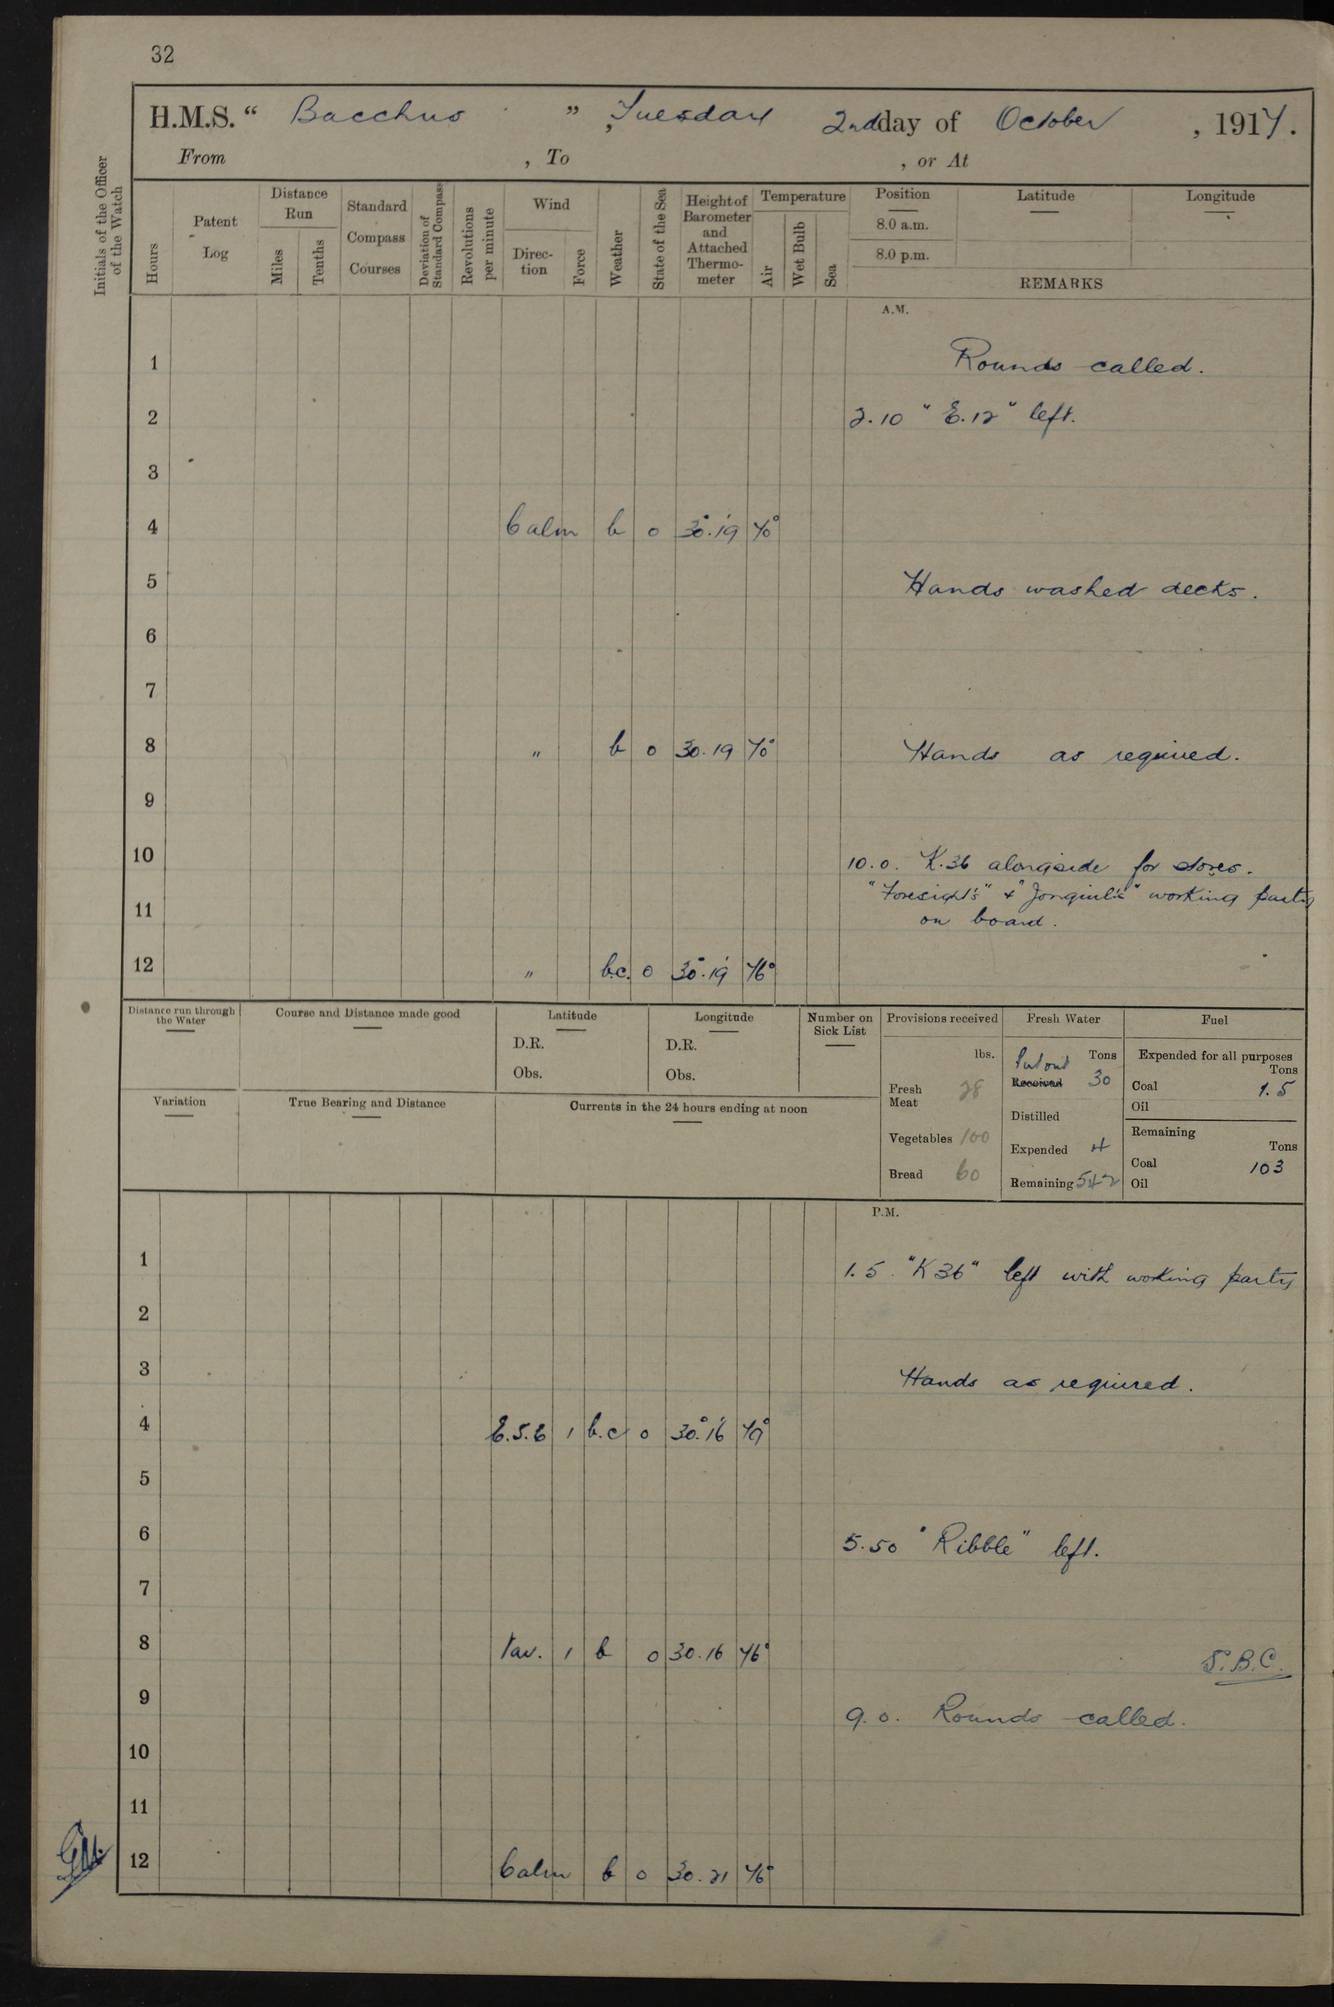 32
H.M.S. “ Bacchus ” , Tuesday 2nd day of October , 1917.
From , To , or At
Initials of the Officer of the Watch
Hours
Patent Log
Distance Run
Miles
Tenths
Standard Compass Courses
Deviation of Standard Compass
Revolutions per minute
Wind
Direction
Force
Weather
State of the Sea
Height of Barometer and Attached Thermometer
Temperature
Air
Wet Bulb
Sea
Position
8.0 a.m.
8.0 p.m.
Latitude
Longitude
REMARKS
A.M.
1 Rounds called.
2 2.10 "E.12" left.
3
4 Calm b 0 30.19 70°
5 Hands washed decks.
6
7
8 " b 0 30.19 70°
Hands as required.
9
10 10.0. K.36 alongside for stores.
"Foresight's" & "Jonquil's" working party
11 on board.
12 " b.c. 0 30.19 76°
Distance run through the Water
Course and Distance made good
Latitude
D.R.
Obs.
Longitude
D.R.
Obs.
Number on Sick List
Provisions received
lbs.
Fresh Meat 28
Vegetables 100
Bread 60
Fresh Water
Tons
Put out
Received 30
Distilled
Expended 4
Remaining 542
Fuel
Expended for all purposes
Tons
Coal 1.5
Oil
Remaining
Tons
Coal 103
Oil
Variation
True Bearing and Distance
Currents in the 24 hours ending at noon
P.M.
1 1.5. "K36" left with working party
2
3 Hands as required.
4 E.S.E 1 b.c 0 30.16 79°
5
6 5.50 "Ribble" left.
7
8 Var. 1 b 0 30.16 76°
S.B.C.
9 9.0. Rounds called.
10
11
12 Calm b 0 30.21 76°